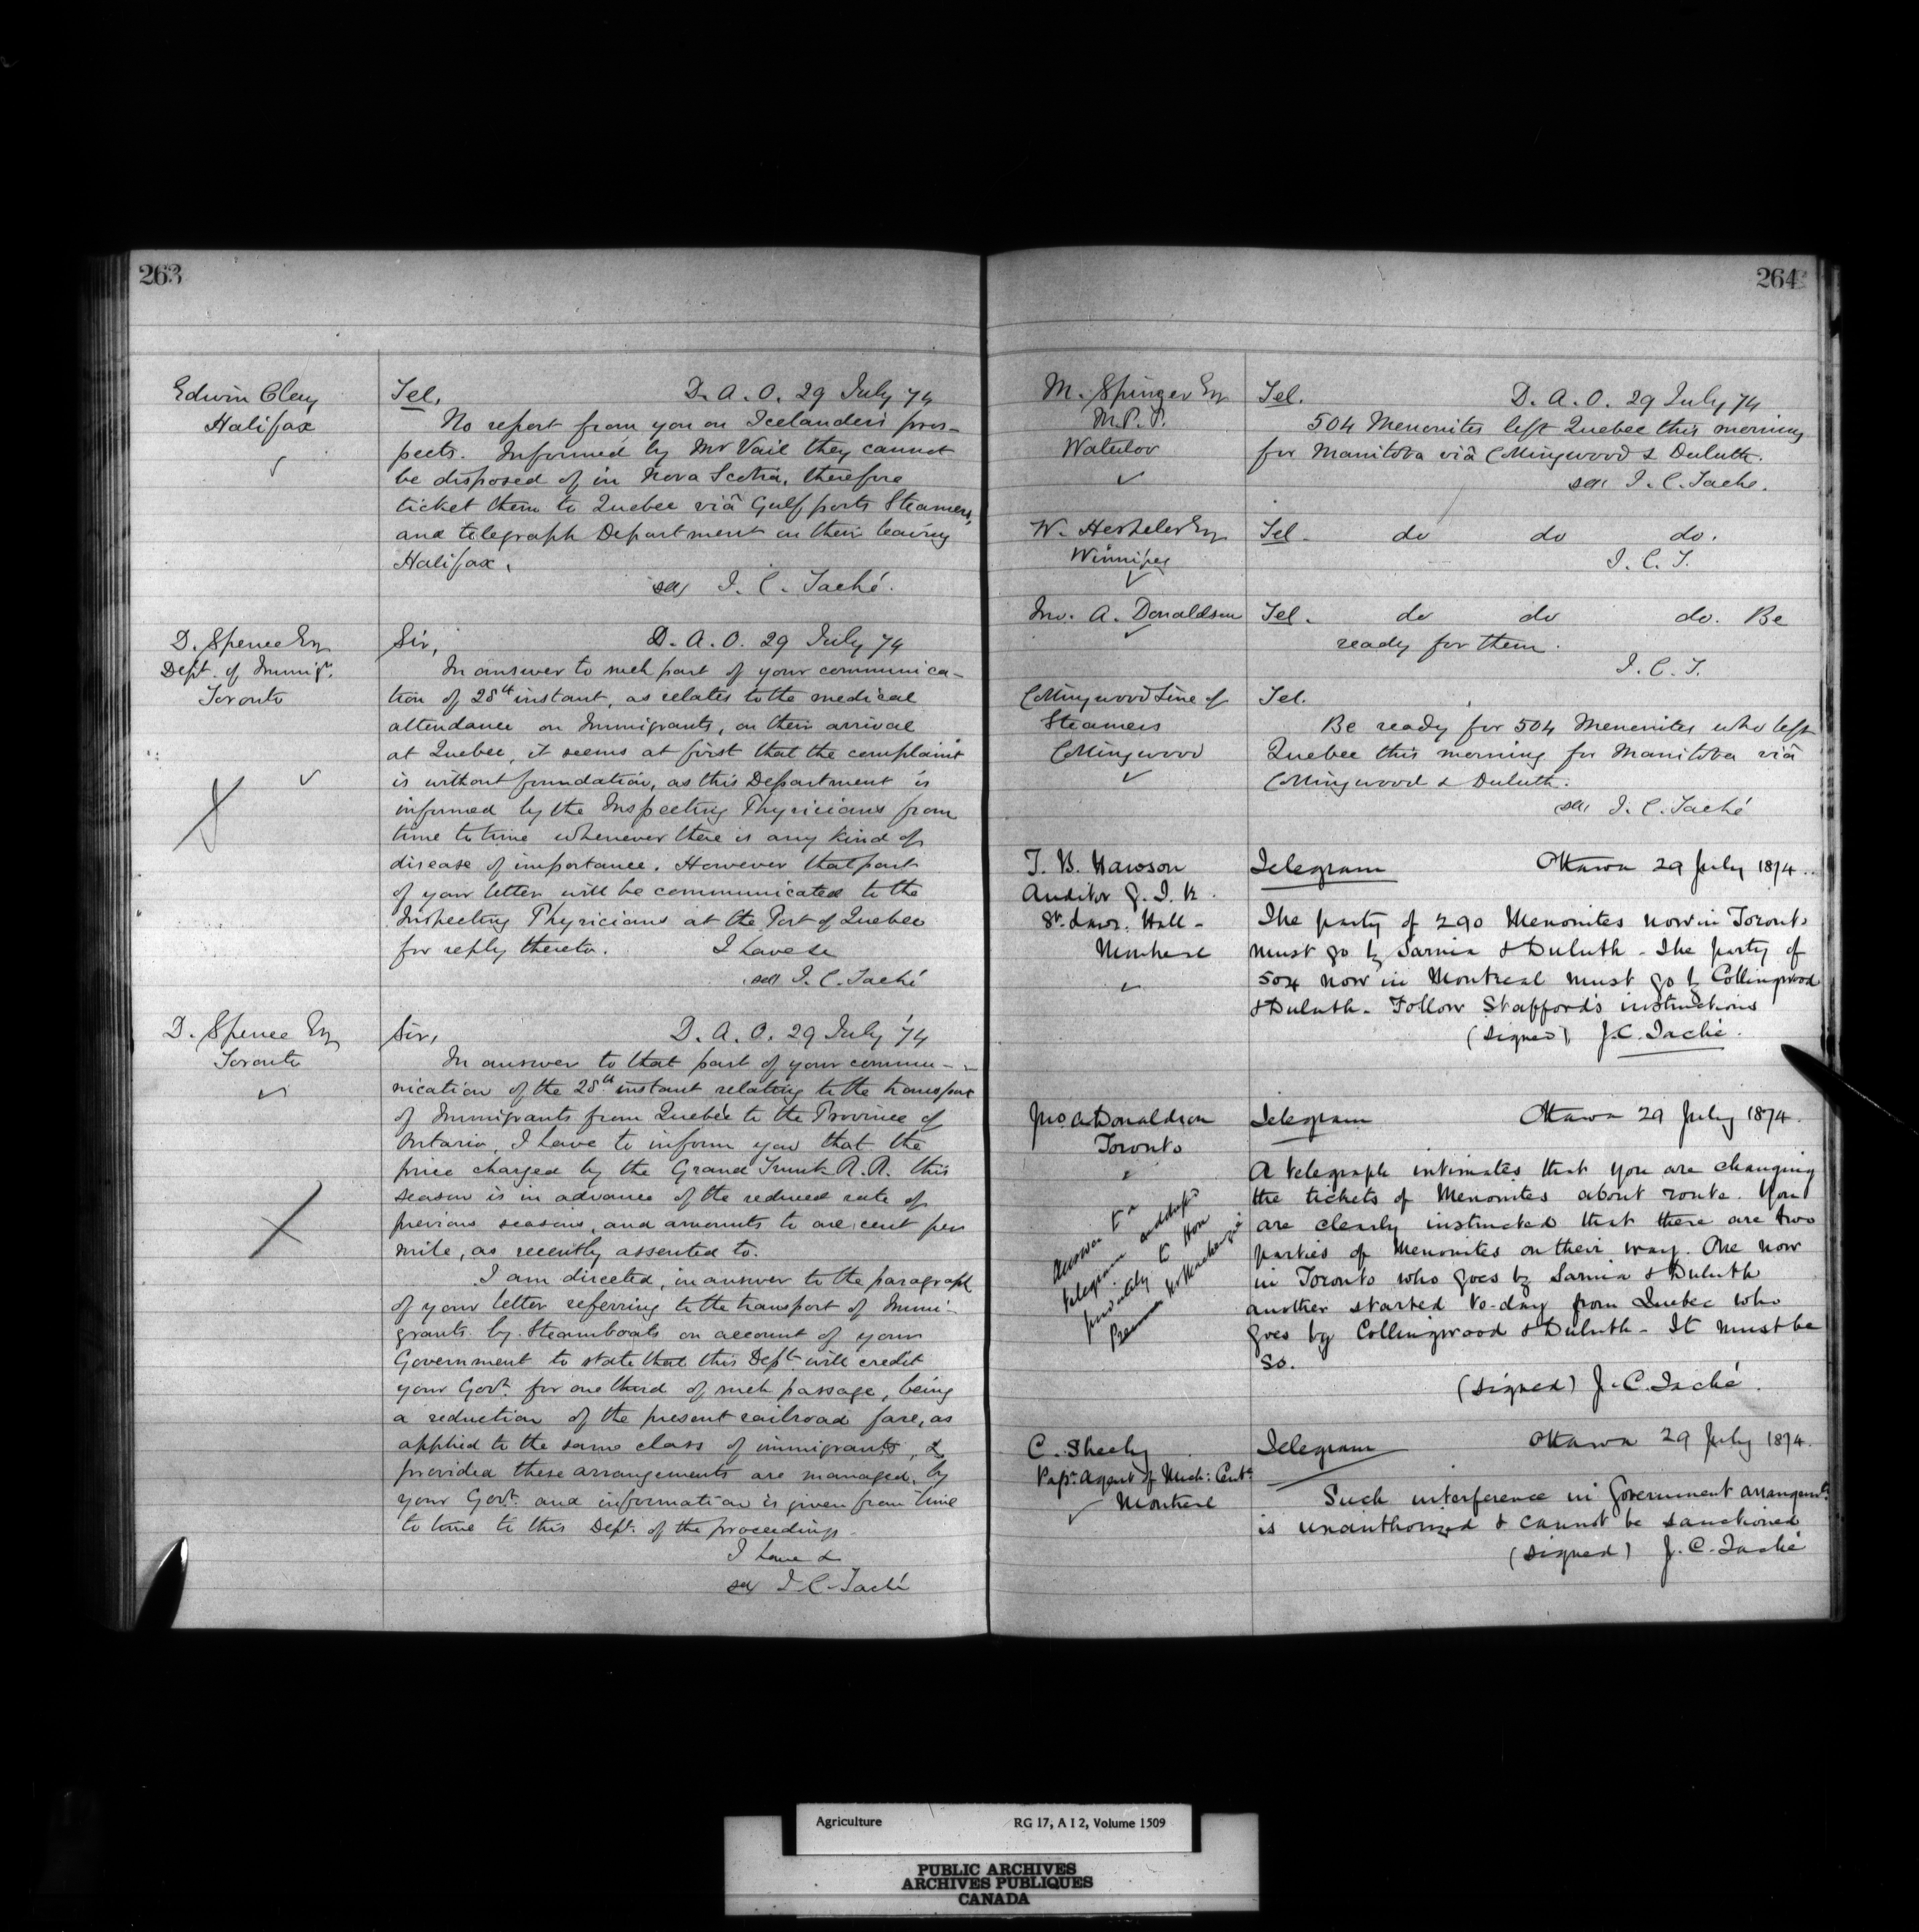 263
Edwin Clay
Halifax
Tel. D. A. O. 29 July 74
No report from you on Icelanders pros-
pects. Informed by Mr Vail they cannot
be disposed of in Nova Scotia, therefore
ticket them to Quebec viâ Gulf ports Steamers,
and telegraph Department on their leaving
Halifax.
sd/ J. C. Taché.
D. Spence Esq
Dept. of Immigr.
Toronto
Sir, D. A. O. 29 July 74
In answer to such part of your communica-
tion of 28th instant, as relates to the medical
attendance on Immigrants, on their arrival
at Quebec, it seems at first that the complaint
is without foundation, as this Department is
informed by the Inspecting Physicians from
time to time whenever there is any kind of
disease of importance. However that part
of your letter will be communicated to the
Inspecting Physicians at the Port of Quebec
for reply thereto. I have &c
sd/ J. C. Taché
D. Spence Esq
Toronto
Sir, D. A. O. 29 July '74
In answer to that part of your commu-
nication of the 28th instant relating to the transport
of Immigrants from Quebec to the Province of
Ontario, I have to inform you that the
price charged by the Grand Trunk R.R. this
season is in advance of the reduced rate of
previous seasons, and amounts to one cent per
mile, as recently assented to.
I am directed, in answer to the paragraph
of your letter referring to the transport of Immi-
grants by Steamboats on account of your
Government to state that this Dept. will credit
your Govt. for one third of such passage, being
a reduction of the present railroad fare, as
applied to the same class of immigrants, &
provided these arrangements are managed by
your Govt. and information is given from time
to time to this Dept. of the proceedings.
I have &
sd/ J. C. Taché
264
M. Springer Esq
M.P.P.
Waterloo
Tel. D. A. O. 29 July 74
504 Menonites left Quebec this morning
for Manitoba viâ Collingwood & Duluth.
sd/ J. C. Taché.
W. Hespeler Esq
Winnipeg
Tel. do do do.
J. C. T.
Jno. A. Donaldson
Tel. do do do. Be
ready for them.
J. C. T.
Collingwood Line of
Steamers
Collingwood
Tel.
Be ready for 504 Menonites who left
Quebec this morning for Manitoba viâ
Collingwood & Duluth.
sd/ J. C. Taché
T. B. Hawson
Auditor G. T. R.
St. Lawr. Hall -
Montreal
Telegram Ottawa 29 July 1874.
The party of 290 Menonites now in Toronto
must go by Sarnia & Duluth - The party of
504 now in Montreal must go by Collingwood
& Duluth. Follow Stafford's instructions
(signed) J. C. Taché.
Jno A Donaldson
Toronto
Answer to a
telegram
privately to Hon
Mr Mackenzie
Telegram Ottawa 29 July 1874.
A telegraph intimates that you are changing
the tickets of Menonites about route. You
are clearly instructed that there are two
parties of Menonites on their way. One now
in Toronto who goes by Sarnia & Duluth
another started to-day from Quebec who
goes by Collingwood & Duluth - It must be
so.
(signed) J. C. Taché.
C. Sheehy
Pasr. Agent of Mich: Cent.
Montreal
Telegram Ottawa 29 July 1874.
Such interference in Government arrangemts
is unauthorized & cannot be sanctioned
(signed) J. C. Taché
Agriculture RG 17, A I 2, Volume 1509
PUBLIC ARCHIVES
ARCHIVES PUBLIQUES
CANADA